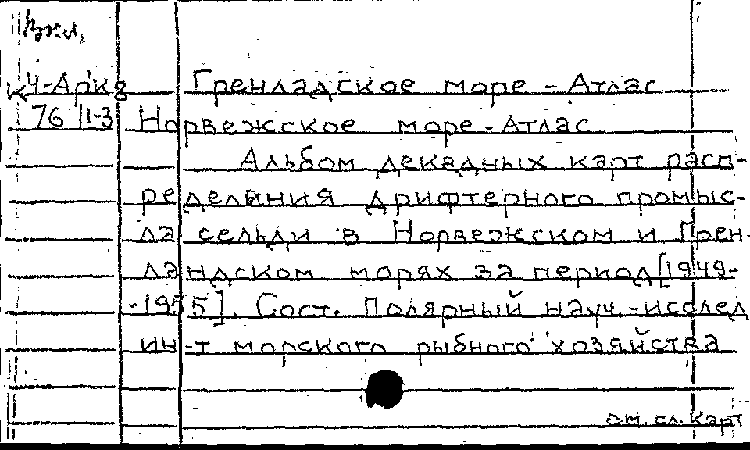 К4-Аркв Гренладское море - Атлас
76 1-3 Норвежское море - Атлас
Альбом декадных карт расп-
ределения дрифтерного промыс-
ла сельди в Норвежском и Грен-
ландском морях за период [1949-
-1955]. Сост. Полярный науч.-исслед
ин-т морского рыбного хозяйства
см. сл. карт